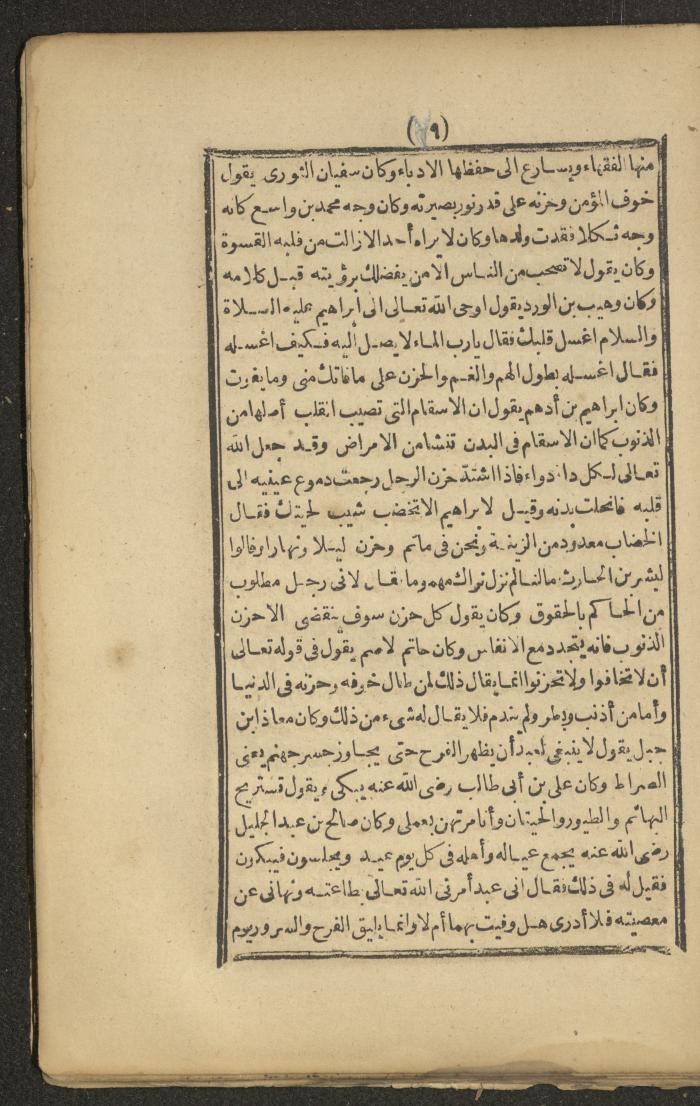 (٩)
منها الفقهاء ويسارع الى حفظها الادباء وكان سفيان الثورى يقول
خوف المؤمن وحزنه على قدر نور بصيرته وكان وجه محمد بن واسع كانه
وجه ثكلا فقدت ولدها وكان لا يراه أحد الا زالت من قلبه القسوة
وكان يقول لا تصحب من الناس الا من يفضلك برؤيته قبل كلامه
وكان وهيب بن الورد يقول اوحى الله تعالى الى ابراهيم عليه السلاة
والسلام اغسل قلبك فقال يارب الماء لا يصل اليه فكيف اغسله
فقال اغسله بطول الهم والغم والحزن على ما فاتك منى وما يفوت
وكان ابراهيم بن أدهم يقول ان الاسقام التى تصيب القلب أصلها من
الذنوب كما ان الاسقام فى البدن تنشا من الامراض وقد جعل الله
تعالى لكل داء دواء فاذا اشتد حزن الرجل رجعت دموع عينيه الى
قلبه فانحلت بدنه وقيل لابراهيم الا تخضب شيب لحيتك فقال
الخضاب معدود من الزينة ونحن فى ماتم وحزن ليلا ونهارا وقالوا
لبشر بن الحارث مالنا لم نزل نراك مهموما فقال لانى رجل مطلوب
من الحاكم بالحقوق وكان يقول كل حزن سوف ينقضى الا حزن
الذنوب فانه يتجدد مع الانفاس وكان حاتم لاصم يقول فى قوله تعالى
أن لا تخافوا ولا تحزنوا انما يقال ذلك لمن طال خوفه وحزنه فى الدنيا
وأما من أذنب وبطر ولم يندم فلا يقال له شىء من ذلك وكان معاذ ابن
جبل يقول لا ينبغى لعبد أن يظهر الفرح حتى يجاوز جسر جهنم يعنى
الصراط وكان على بن أبى طالب رضى الله عنه يبكى ويقول تستريح
البهائم والطيور والحيتان وأنا مرتهن بعملى وكان صالح بن عبد الجليل
رضى الله عنه يجمع عياله وأهله فى كل يوم عيد ويجلسون فيبكون
فقيل له فى ذلك فقال انى عبد أمرنى الله تعالى بطاعته ونهانى عن
معصيته فلا أدرى هل وفيت بهما أم لا وانما يليق الفرح والسرور يوم